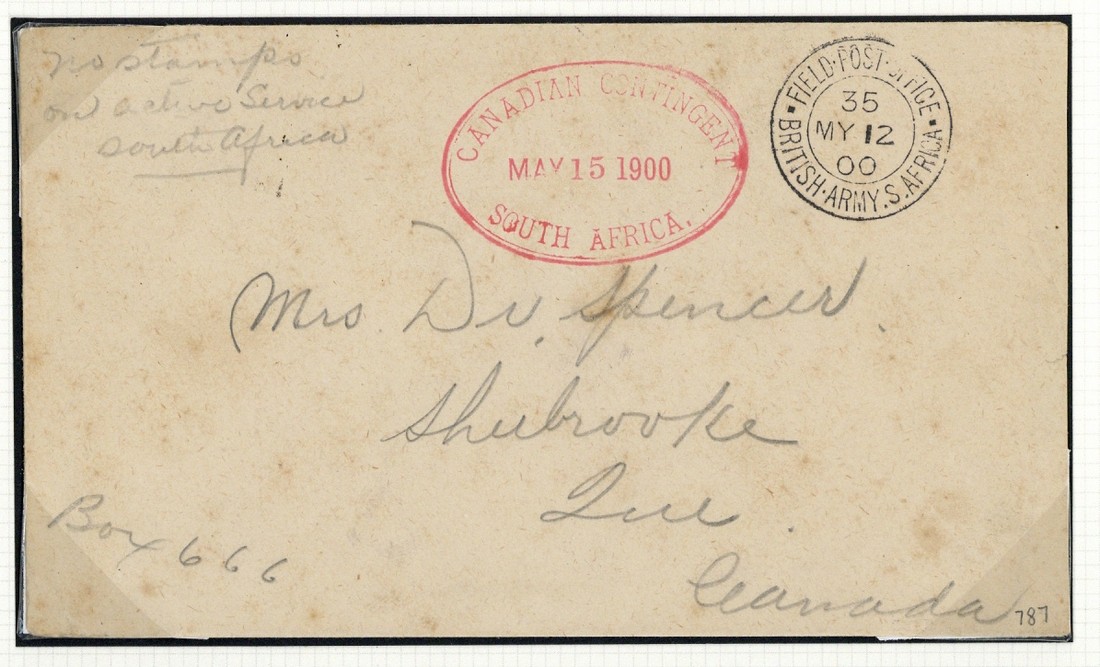 no stamps
on active Service
South Africa
CANADIAN CONTINGENT
MAY 15 1900
SOUTH AFRICA.
FIELD·POST·OFFICE
35
MY 12
00
BRITISH·ARMY.S.AFRICA
Mrs. Dr. Spencer.
Sherbrooke
Que.
Box 666
Canada
787